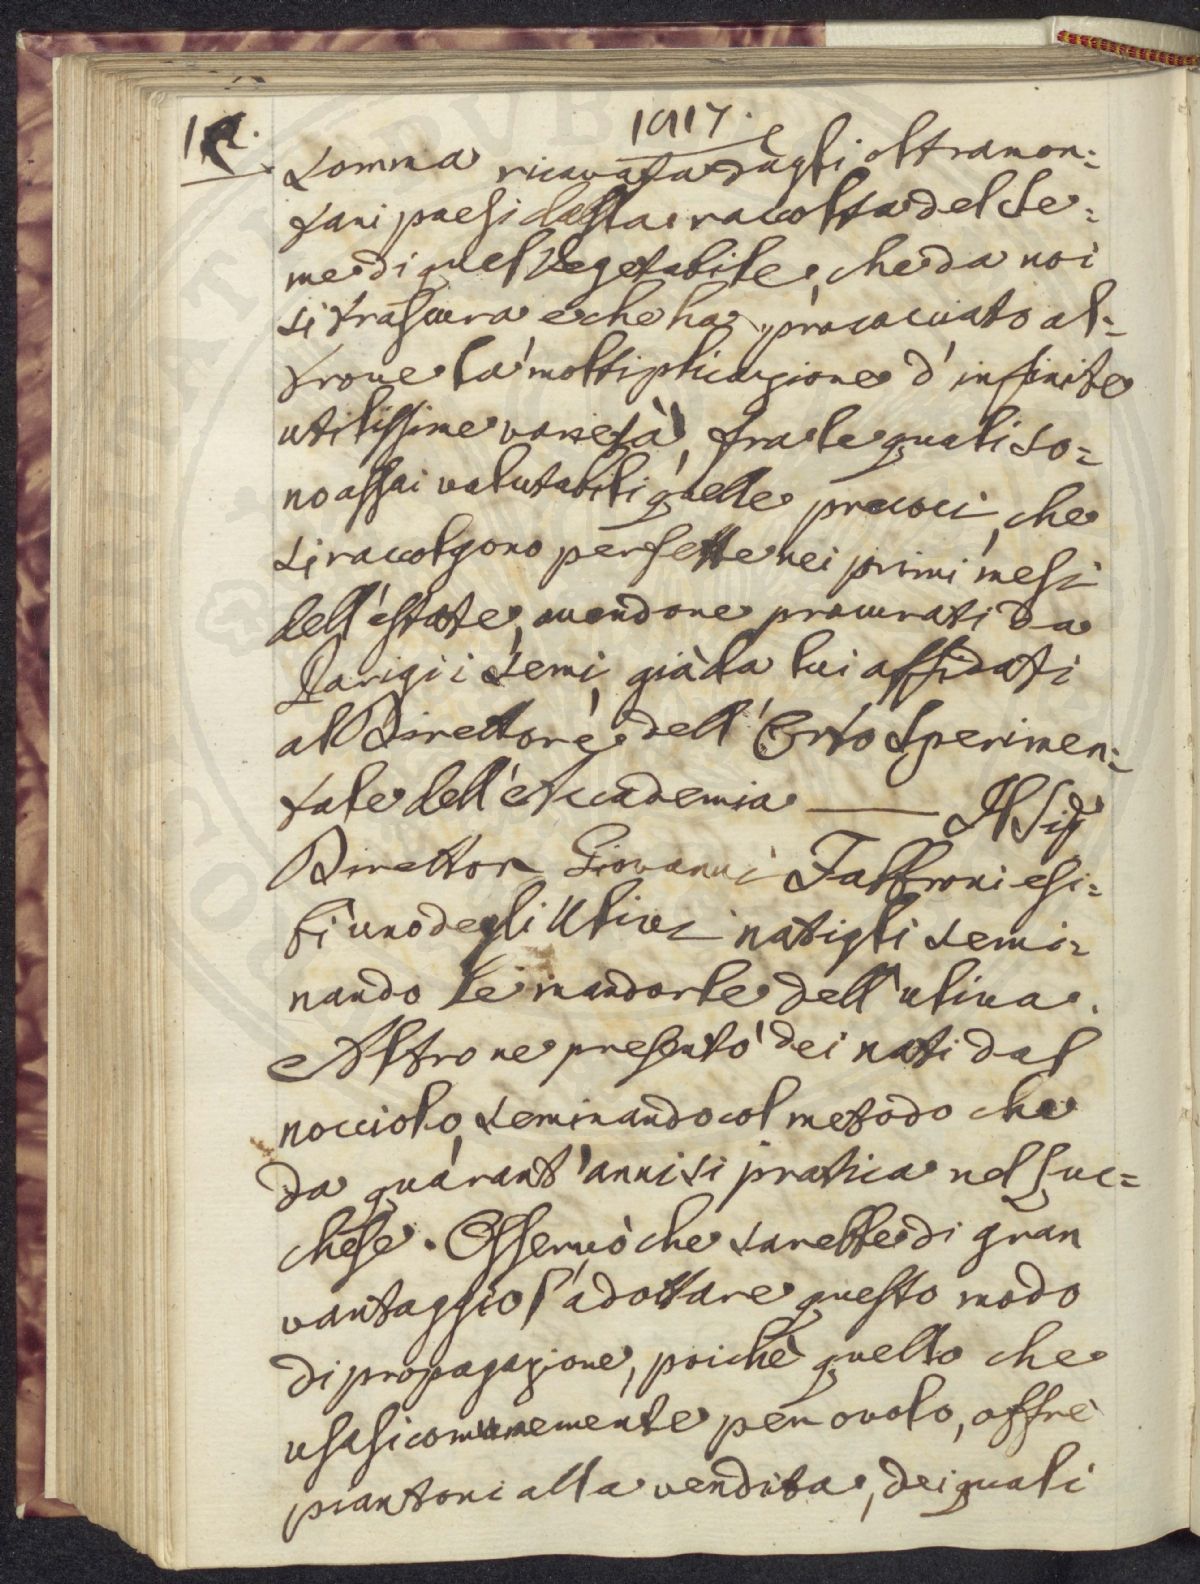 1917.
somma ricavata dagli oltramon=
tani paesi dalla raccolta del Se=
me di quel Vegetabile, che da noi
si trascura e che ha procacciato al=
trove la moltiplicazione d'infinite
utilissime varietà, fra le quali so=
no assai valutabili quelle precoci, che
si raccolgono perfette nei primi mesi
dell'estate, avendone procurati da
Parigi i Semi, già da lui affidati
al Direttore dell'Orto Sperimen=
tale dell'Accademia — Il Sig
Director Giovanni Fabbroni esi=
bì uno degli Ulivi natigli semi=
nando le mandorle dell'uliva.
Altro ne presentò dei nati dal
nocciolo, seminando col metodo che
da quarant'anni si pratica nel Luc=
chese. Osservò che sarebbe di gran
vantaggio l'adottare questo modo
di propagazione, poichè quello che
usasi comunemente per ovolo, offre
piantoni alla vendita, dei quali